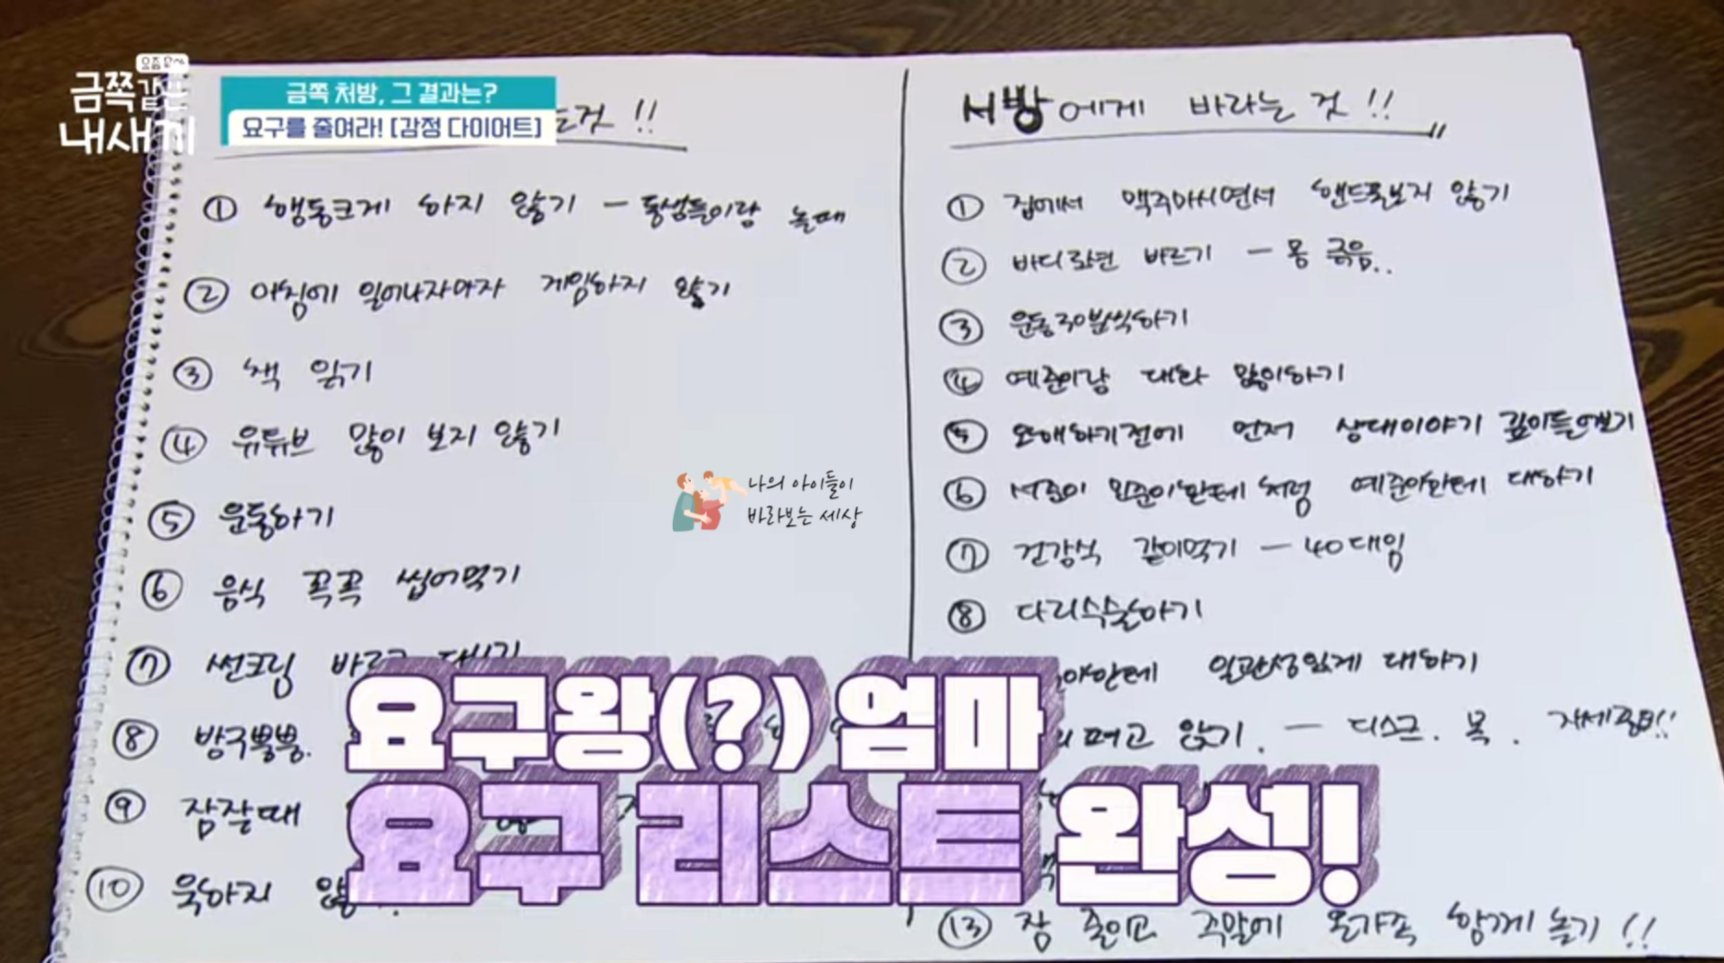 요즘 육아
금쪽같은
내새끼
금쪽 처방, 그 결과는?
요구를 줄여라! [감정 다이어트]
는것 !!
① 행동크게 하지 않기 - 동생들이랑 놀때
② 아침에 일어나자마자 게임하지 않기
③ 책 읽기
④ 유튜브 많이 보지 않기
⑤ 운동하기
⑥ 음식 꼭꼭 씹어먹기
⑦ 썬크림
⑧ 방구뿡뿡.
⑨ 잠잘때
⑩ 욱하지
서방에게 바라는 것 !!
① 집에서 맥주마시면서 핸드폰보지 않기
② 바디로션 바르기 - 몸 긁음..
③ 운동30분씩하기
④ 예준이랑 대화 많이하기
⑤ 오해하기전에 먼저 상대이야기 깊이들어보기
⑥ 서준이 외준이한테처럼 예준이한테 대하기
⑦ 건강식 같이먹기 - 40대임
⑧ 다리수술하기
한테 일관성있게 대하기
펴고 앉기. - 디스크. 목.
⑬ 잠 줄이고 주말에 온가족 함께 놀기 !!
나의 아이들이
바라보는 세상
요구왕(?) 엄마
요구 리스트 완성!